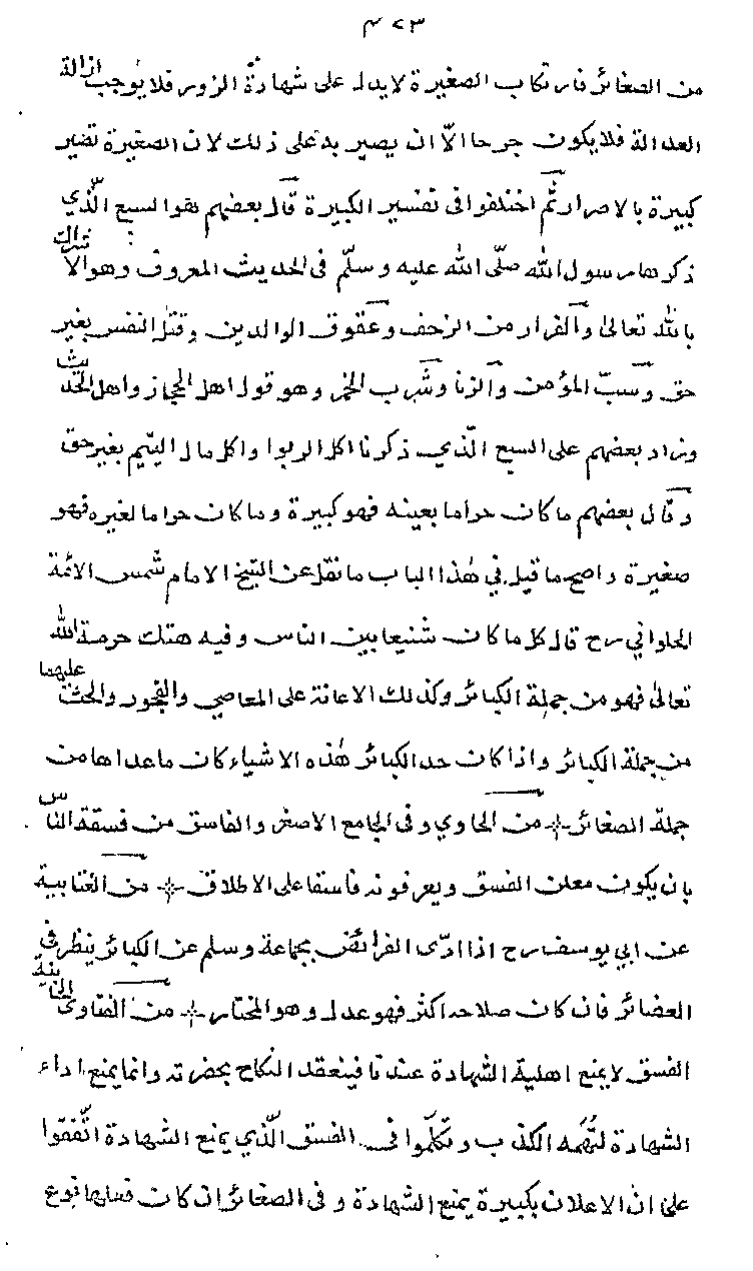 ٢٣ م
من الصغائر فارتكاب الصغيرة لا يدل على شهادة الزور فلا يوجب ازالة
العدالة فلا يكون جرحا الّا ان يصير به على ذلك لان الصغيرة تصير
كبيرة بالاصرار ثم اختلفوا في تفسير الكبيرة قال بعضهم هوا السبع الّذي
ذكرها رسول الله صلّى الله عليه وسلّم في الحديث المعروف وهو الاشراك
بالله تعالى والفرار من الزحف وعقوق الوالدين وقتل النفس بغير
حق وسبّ المؤمن والزنا وشرب الخمر وهو قول اهل الحجاز واهل الحديث
وزاد بعضهم على السبع الّذي ذكرنا اكل الربوا واكل مال اليتيم بغير حق
وقال بعضهم ما كان حراما بعينه فهو كبيرة وما كان حراما لغيره فهو
صغيرة واصح ما قيل في هذا الباب ما نقل عن الشيخ الامام شمس الائمة
الحلواني رح قال كل ما كان شنيعا بين الناس وفيه هتك حرمة الله
تعالى فهو من جملة الكبائر وكذلك الاعانة على المعاصي والفجور والحث عليهما
من جملة الكبائر واذا كان حد الكبائر هذه الاشياء كان ما عداها من
جملة الصغائر من الحاوي وفي الجامع الاصغر والفاسق من فسقة الناس
بان يكون معلن الفسق ويعرفونه فاسقا على الاطلاق من العتابية
عن ابي يوسف رح اذا ادّى الفرائض بجماعة وسلم عن الكبائر ينظر في
الصغائر فان كان صلاحه اكثر فهو عدل وهو المختار من الفتاوى الخانية
الفسق لا يمنع اهلية الشهادة عندنا فينعقد النكاح بحضرته وانما يمنع اداء
الشهادة لتُهمه الكذب وتكلّموا في الفسق الّذي يمنع الشهادة اتّفقوا
على انّ الاعلان بكبيرة يمنع الشهادة وفي الصغائر ان كان فعلها نوع